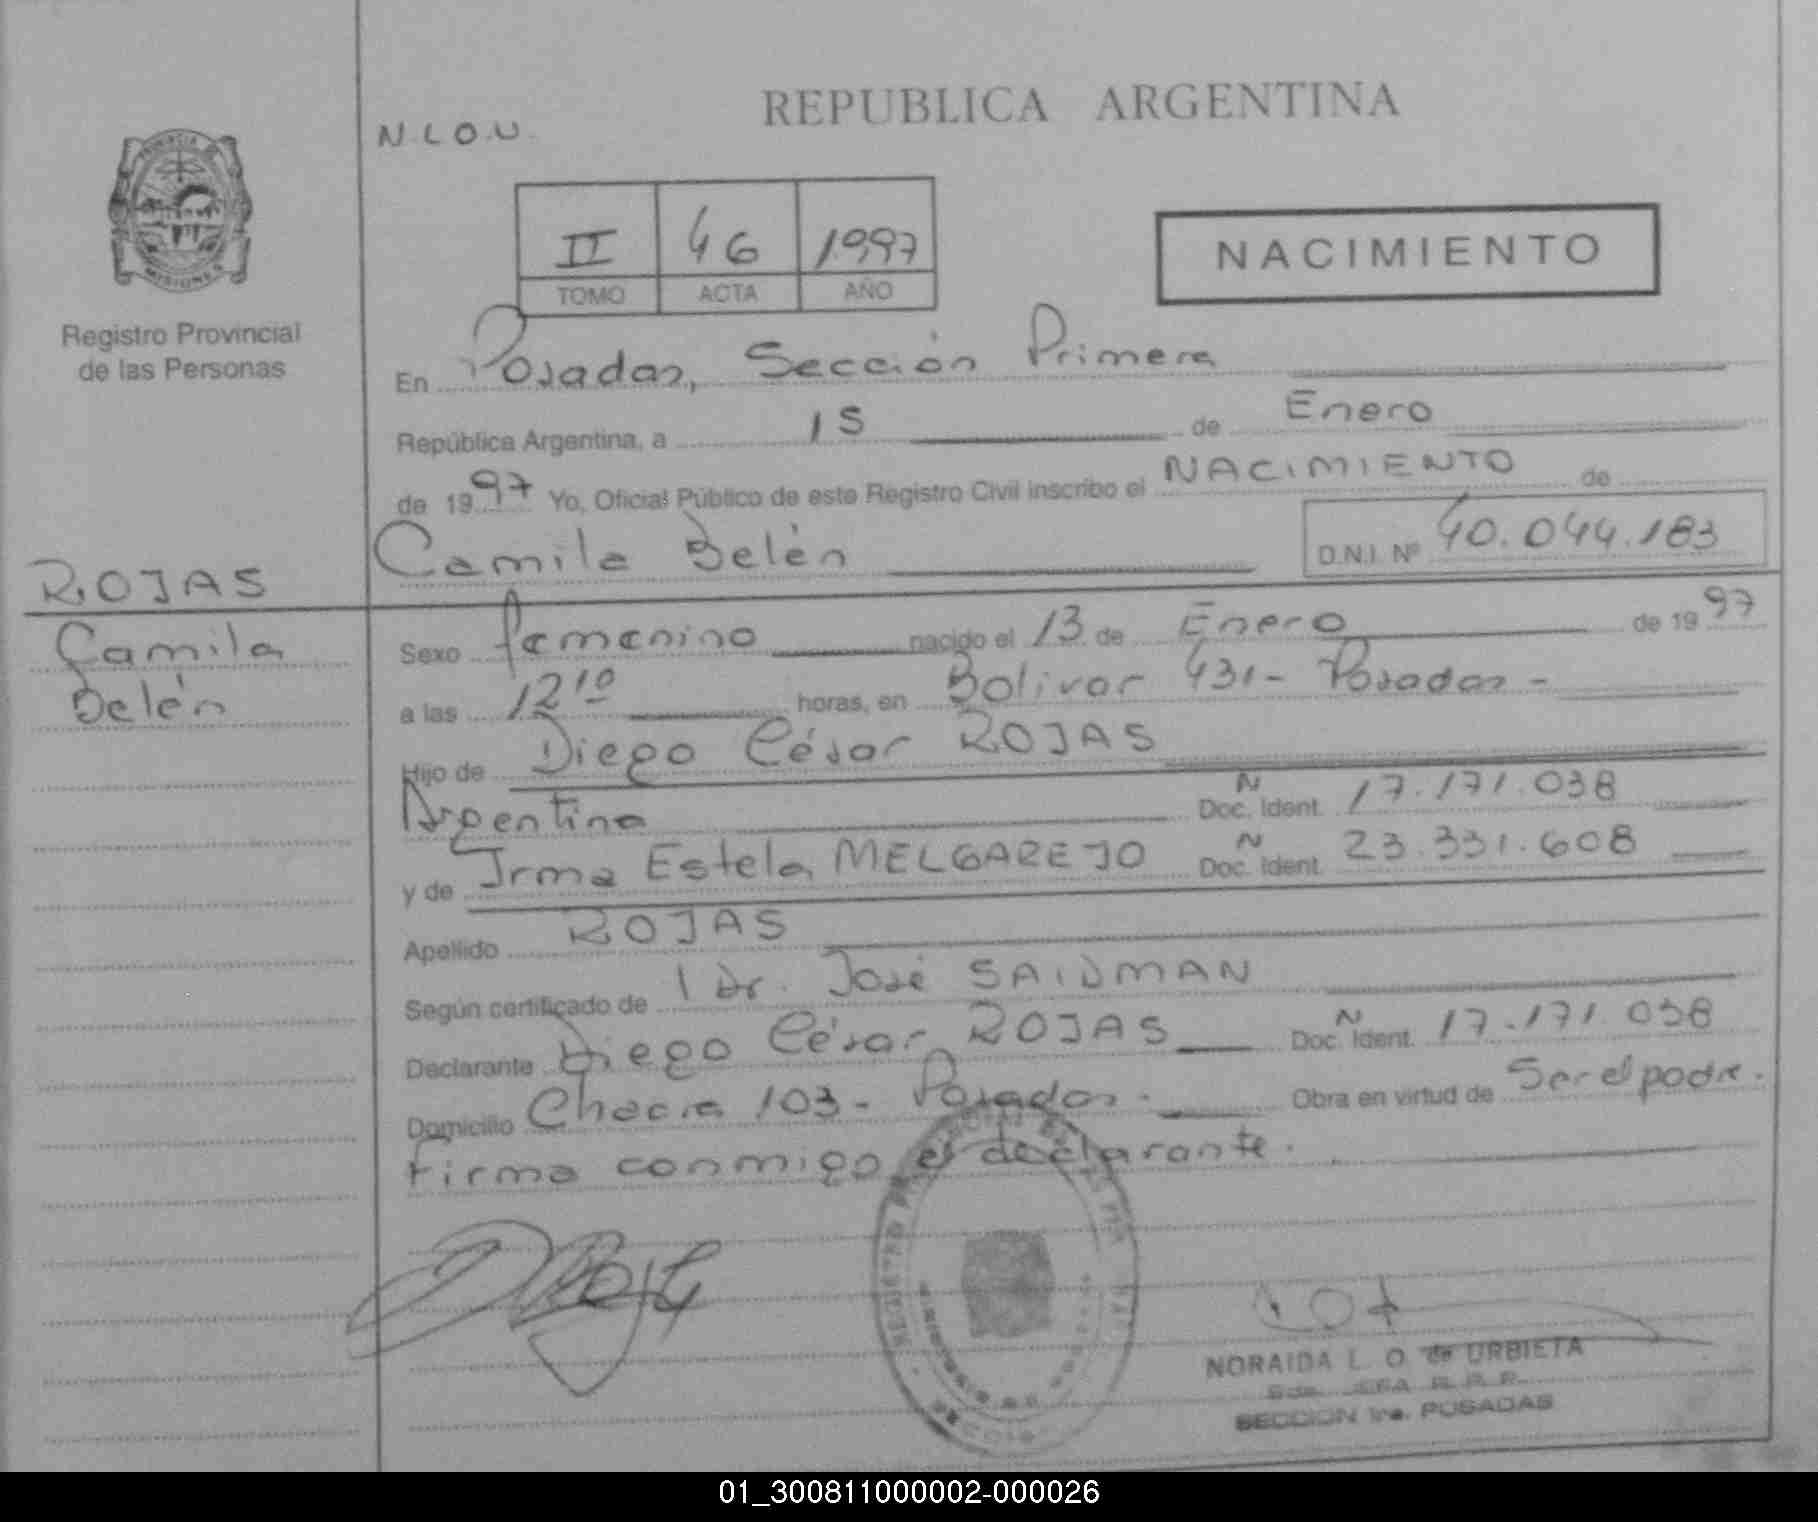 REPUBLICA ARGENTINA
N.L.O.U.
PROVINCIA DE
MISIONES
Registro Provincial
de las Personas
II 46 1997
TOMO ACTA AÑO
NACIMIENTO
En Posadas, Sección Primera
República Argentina, a 15 de Enero
de 1997 Yo, Oficial Público de este Registro Civil inscribo el NACIMIENTO de
Camila Belén D.N.I. Nº 40.044.183
ROJAS
Camila
Belén
Sexo femenino nacido el 13 de Enero de 1997
a las 12 10 horas, en Bolivar 431 - Posadas -
Hijo de Diego César ROJAS
Argentina Doc. Ident. N 17.171.038
y de Irma Estela MELGAREJO Doc. Ident. N 23.331.608
Apellido ROJAS
Según certificado de 1 Dr. José SAIDMAN
Declarante Diego César ROJAS Doc. Ident. N 17.171.038
Domicilio Chacra 103 - Posadas - Obra en virtud de Ser el padre.
Firma conmigo el declarante.
NORAIDA L. O. de URBIETA
R. P. P.
SECCION 1ra. POSADAS
01_300811000002-000026